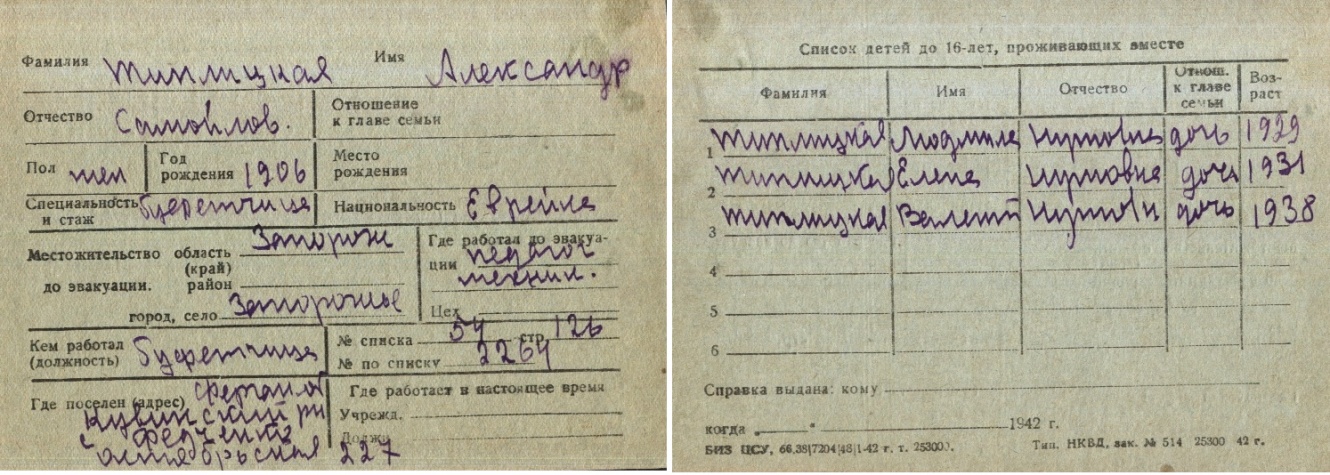 Фамилия Типлицкая Имя Александр
Отчество Самойлов. Отношение к главе семьи
Пол жен Год рождения 1906 Место рождения
Специальность и стаж буфетчица Национальность Еврейка
Местожительство до эвакуации. область (край) Запорож
район
город, село Запорожье
Где работал до эвакуации педагог
технил.
Цех
Кем работал (должность) буфетчица
№ списка 54 стр 126
№ по списку 2264
Где поселен (адрес) Фергано
Кувинский рн
с Федченко
октябрьская 227
Где работает в настоящее время
Учрежд.
Должн.
Список детей до 16-лет, проживающих вместе
Фамилия Имя Отчество Отнош. к главе семьи Возраст
1 Типлицкая Людмила дочь 1929
2 Типлицкая Елена дочь 1931
3 Типлицкая Валент дочь 1938
4
5
6
Справка выдана: кому
когда „ “ 1942 г.
БИЗ ЦСУ, 66,38|7204|48|1-42 г. т. 25300.
Тип. НКВД, зак. № 514 25300 42 г.